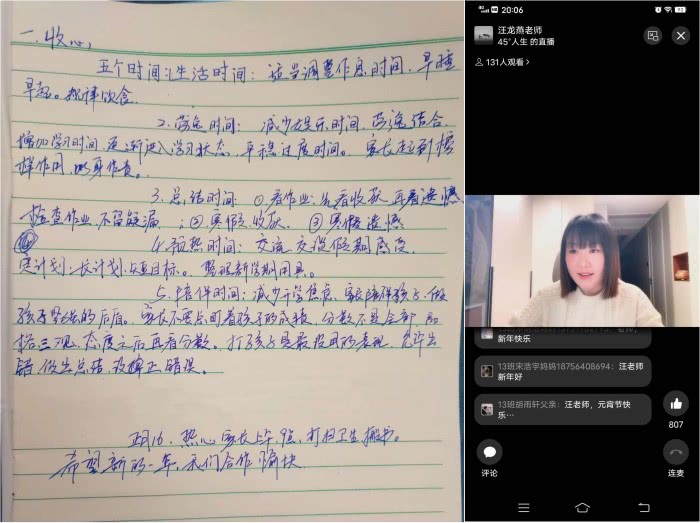 一、收心
五个时间:1.生活时间:适当调整作息时间,早睡
早起。规律饮食.
2.学习时间:减少娱乐时间,劳逸结合,
增加学习时间,逐渐进入学习状态,平稳过度时间。家长起到榜
样作用,以身作责。
3.总结时间:①看作业:先看收获,再看遗憾
检查作业,不留缺漏;②寒假收获 ③寒假遗憾
4.预热时间:交流交谈假期感受
定计划:长计划,短目标。整理新学期用具。
5.陪伴时间:减少开学焦虑,家长陪伴孩子,做
孩子坚强的后盾。家长不要只盯着孩子的成绩,分数不是全部,
三观、态度之后再看分数。打孩子是最没用的表现,允许出
错,做出总结,改掉正错误。
正月16,热心家长上午9点,打扫卫生搬书。
希望新的一年,我们合作愉快
20:06
汪龙燕老师
45°人生 的直播
131人观看 >
新年快乐
13班宋浩宇妈妈18756408694:汪老师
新年好
13班胡雨轩父亲:汪老师,元宵节快
乐…
807
评论
连麦